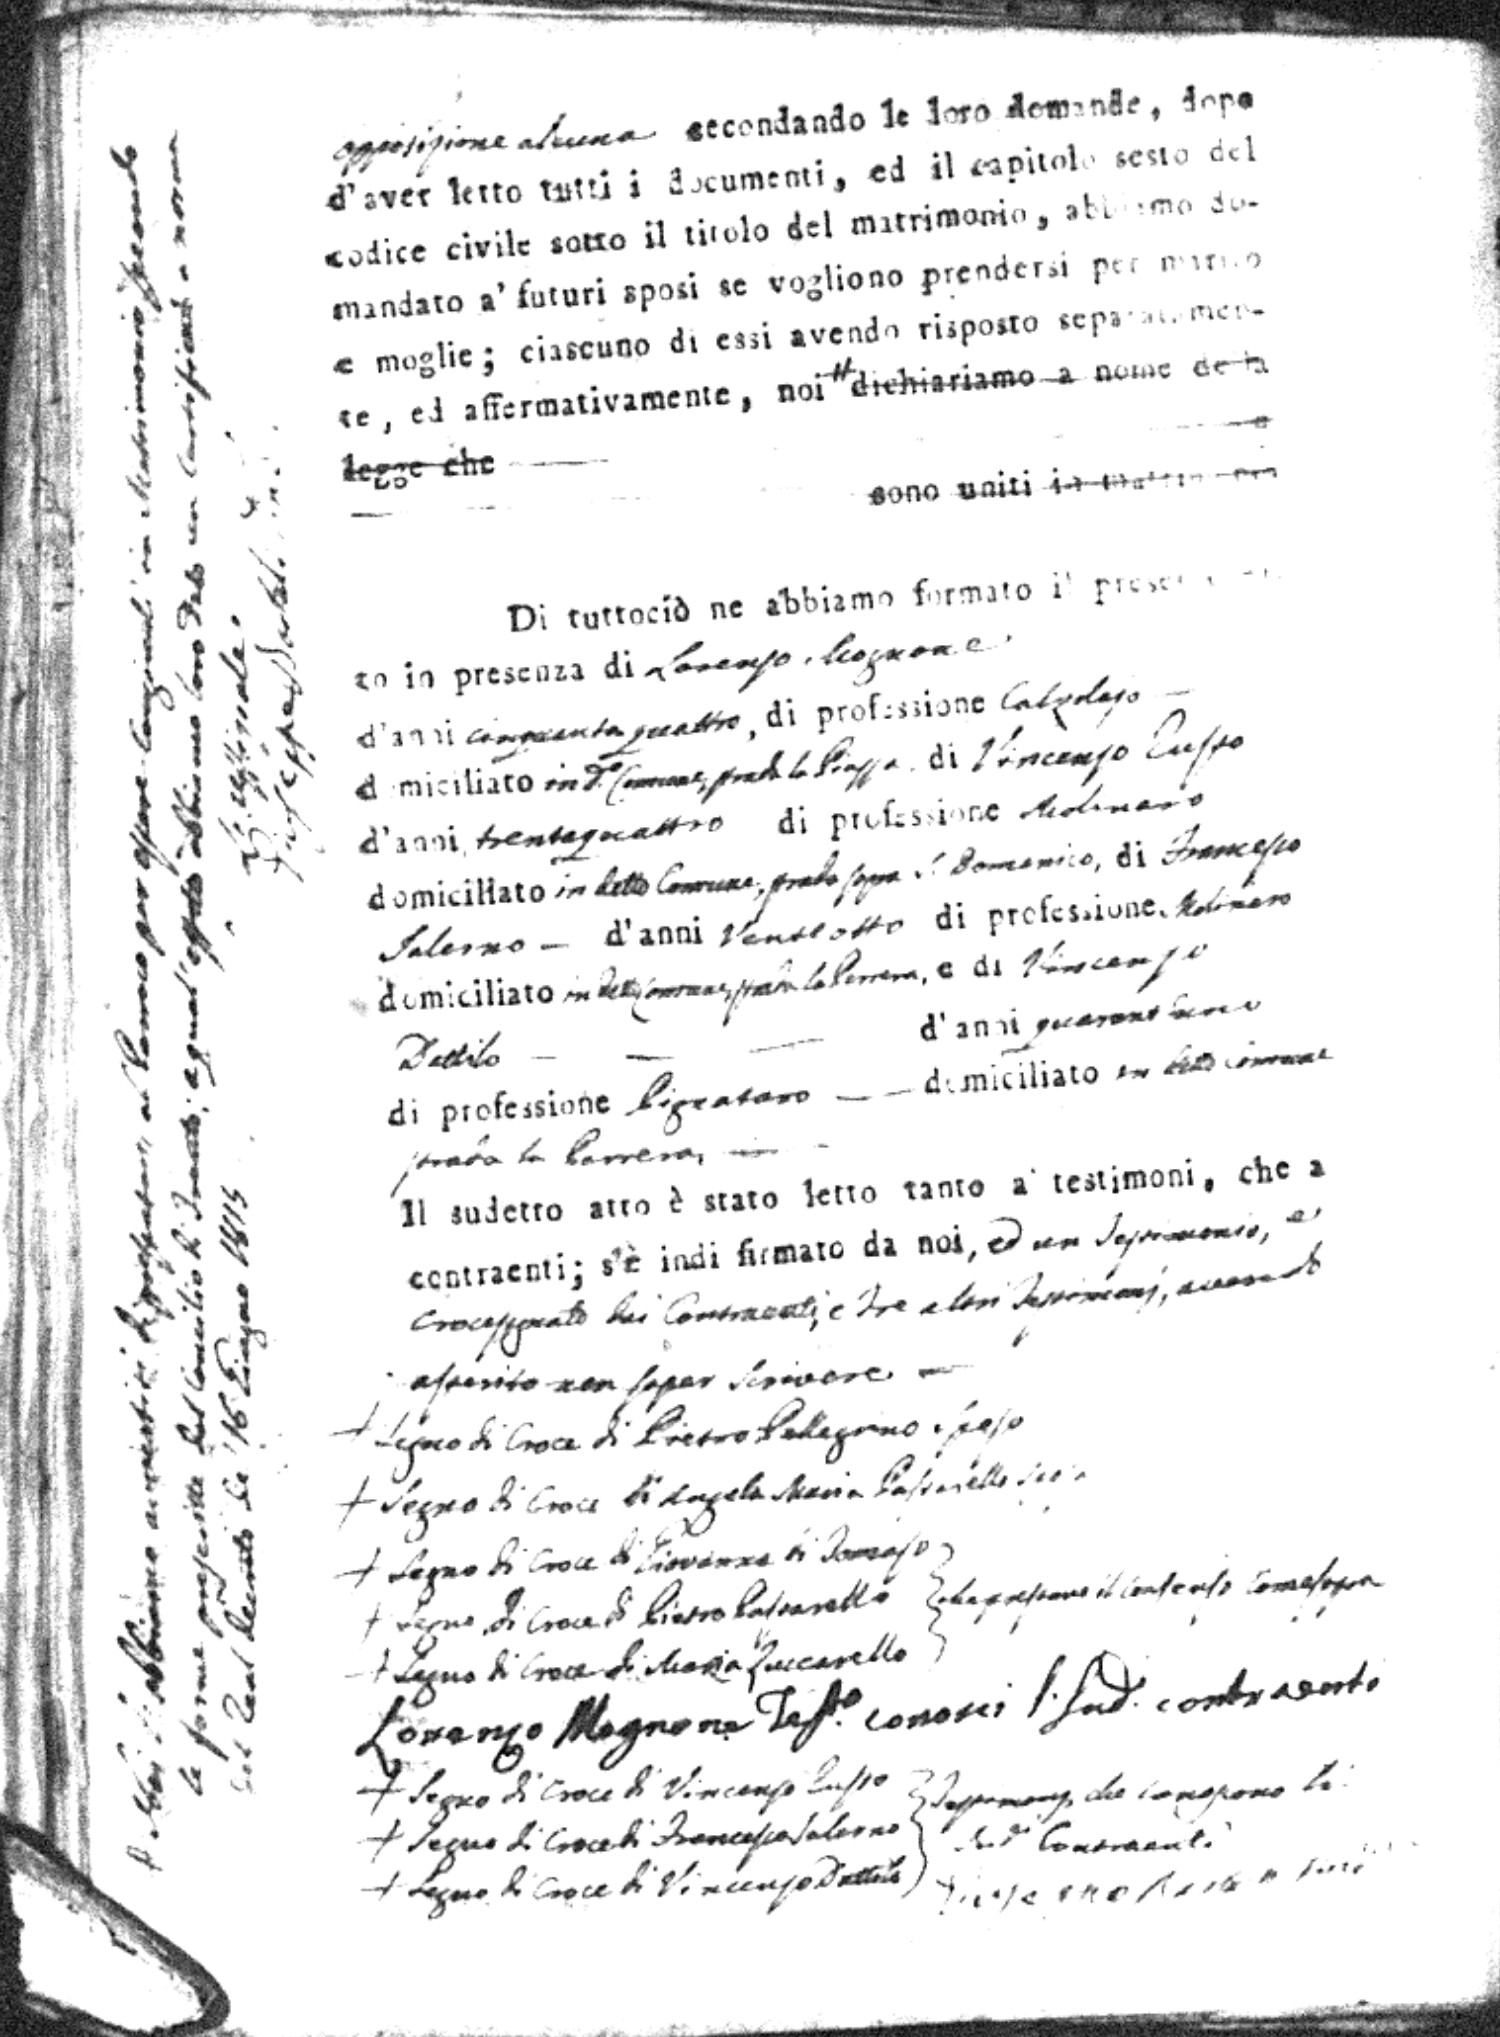 opposizione alcuna secondando le loro domande, dopo
d'aver letto tutti i documenti, ed il capitolo sesto del
codice civile sotto il titolo del matrimonio, abbiamo do-
mandato a' futuri sposi se vogliono prendersi per marito
e moglie; ciascuno di essi avendo risposto separatamen-
te, ed affermativamente, noi # dichiariamo a nome della
legge che
sono uniti in matrimonio
Di tuttociò ne abbiamo formato il presente
to in presenza di Lorenzo Mognone
d'anni cinquanta quattro, di professione Calzolajo
domiciliato in d.o Comune, strada la Piazza, di Vincenzo Zusso
d'anni trentaquattro di professione Molinaro
domiciliato in detto Comune, strada sopra S. Domenico, di Francesco
Salerno d'anni Ventiotto di professione Molinaro
domiciliato in detto Comune, strada la Parrera, e di Vincenzo
Dattilo d'anni quarant'uno
di professione Pignataro domiciliato in detto Comune
strada la Parrera,
Il sudetto atto è stato letto tanto a' testimoni, che a
contraenti; s'è indi firmato da noi, ed un Testimonio, e
crocesegnato dai Contraenti, e tre altri Testimonj, avendo
asserito non saper scrivere
+ Segno di Croce di Pietro Pellegrino sposo
+ Segno di Croce di Angela Maria Passarello
+ Segno di Croce di Giovanna di Tomaso
+ Segno di Croce di Pietro Passarello } che prestano il consenso come sopra
+ Segno di Croce di Maria Zuccarello
Lorenzo Mognone Test.o conosci l. sud. contraenti
+ Segno di Croce di Vincenzo Zusso
+ Segno di Croce di Francesco Salerno } Testimonj, che conoscono li
+ Segno di Croce di Vincenzo Dattilo sud.i Contraenti
# Noi abbiamo al Parroco per essere congiunti in Matrimonio secondo
le forme prescritte dal Concilio di Trento, a qual'effetto abbiamo loro dato un Certificato a norma
del Real Decreto de' 16 Giugno 1815
Giuseppe